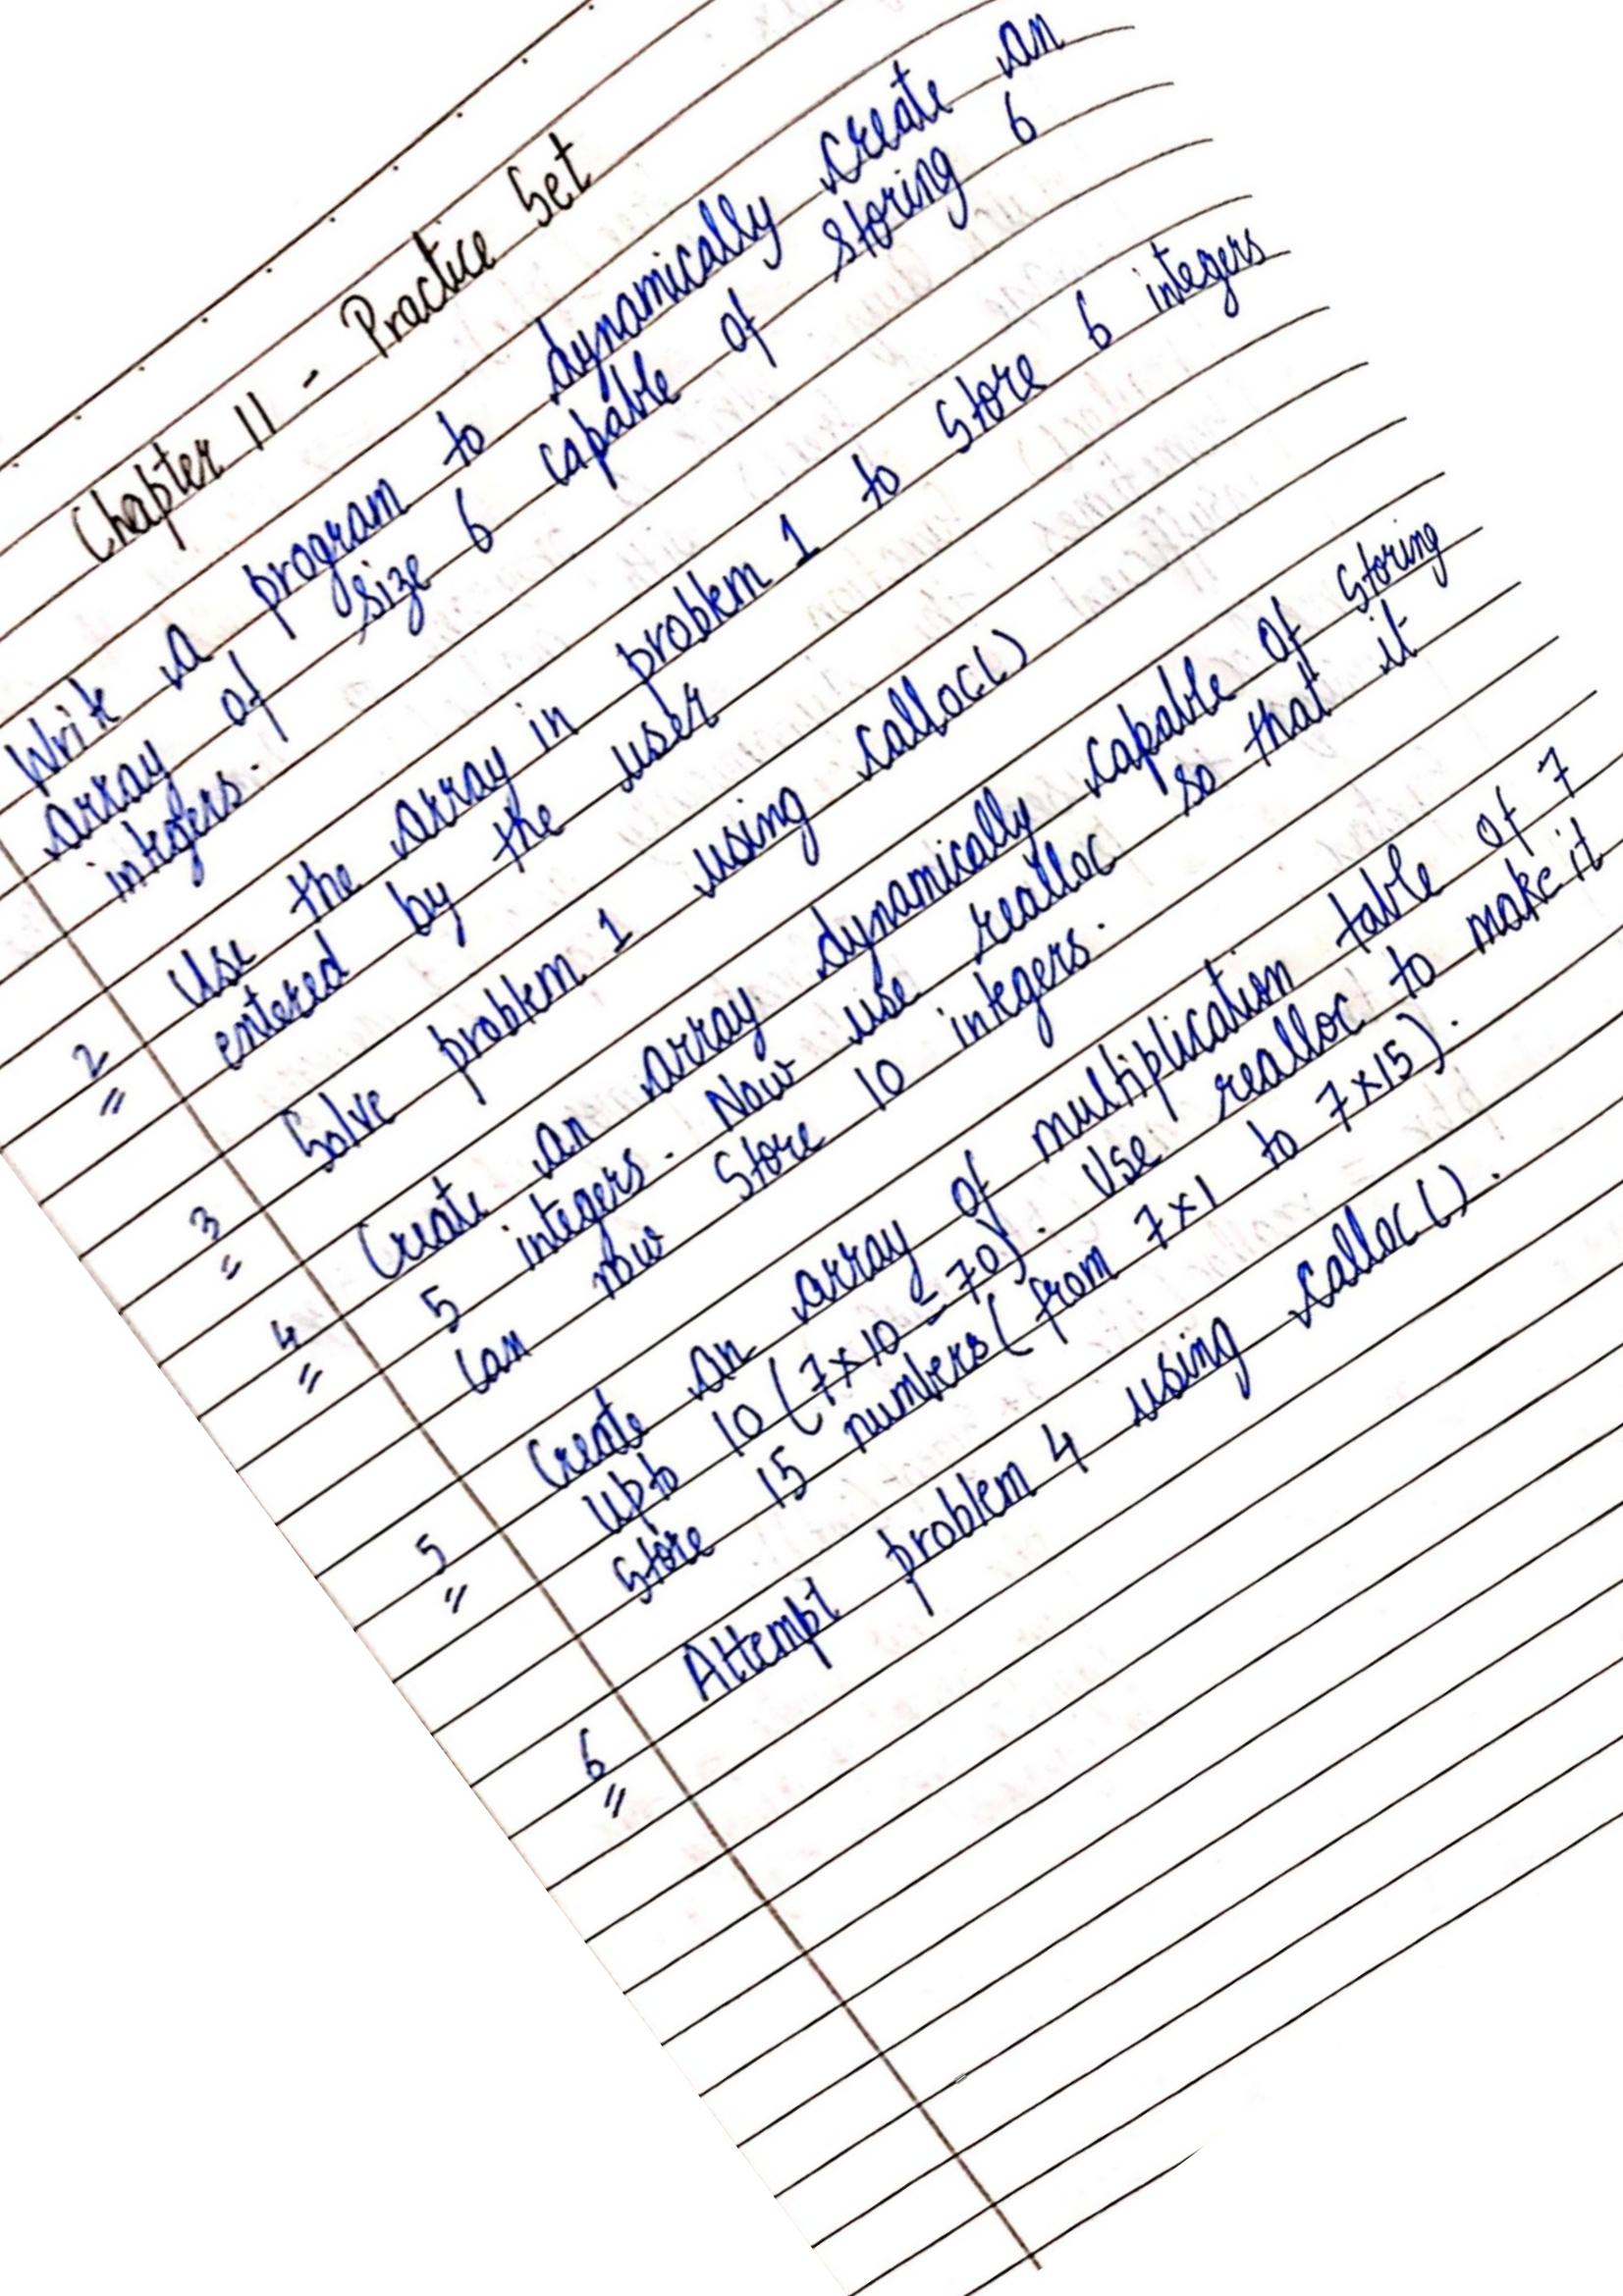 Chapter 11 - Practice Set
Write a program to dynamically create an
array of size 6 capable of storing 6
integers.
2 Use the array in problem 1 to store 6 integers
entered by the user
3 Solve problem 1 using calloc()
4 Create an array dynamically capable of storing
5 integers. Now use realloc so that it
can now store 10 integers.
5 Create an array of multiplication table of 7
upto 10 (7×10 = 70). Use realloc to make it
store 15 numbers (from 7×1 to 7×15).
6 Attempt problem 4 using calloc().